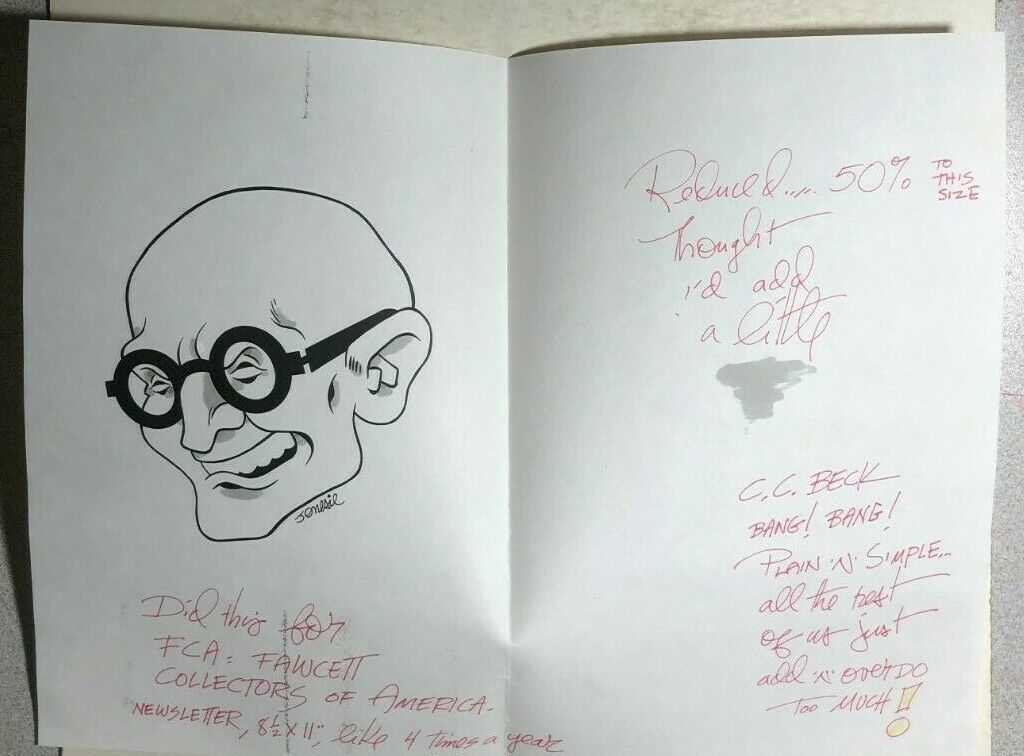 Jenesie
Did this for
FCA: FAWCETT
COLLECTORS OF AMERICA.
NEWSLETTER, 8½ X 11", like 4 times a year
Reduced..... 50% TO
THIS
SIZE
Thought
i'd add
a little
C.C. BECK
BANG! BANG!
PLAIN 'N' SIMPLE...
all the rest
of us just
add 'N' OVERDO
TOO MUCH!